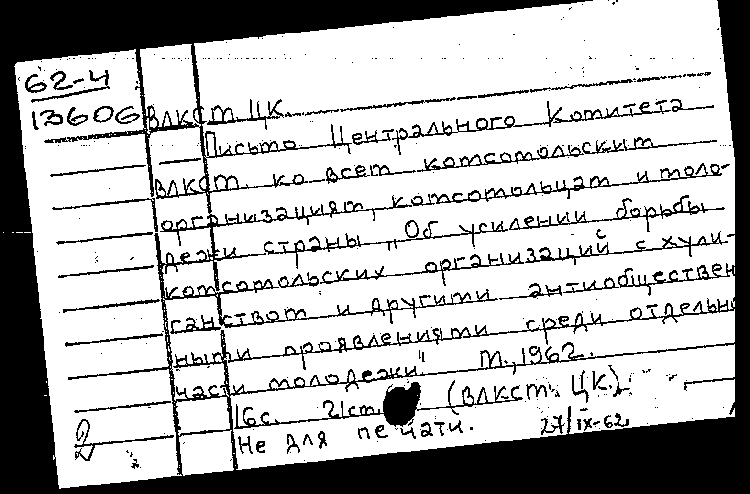 62-4
13606 ВЛКСМ. ЦК.
Письмо Центрального Комитета
ВЛКСМ. ко всем комсомольским
организациям, комсомольцам и моло-
дежи страны „Об усилении борьбы
комсомольских организаций с хули-
ганством и другими антиобществен
ными проявлениями среди отдельно
части молодежи". М., 1962.
16с. 21см. (ВЛКСМ. ЦК.).
Не для печати. 27/IX-62.
2